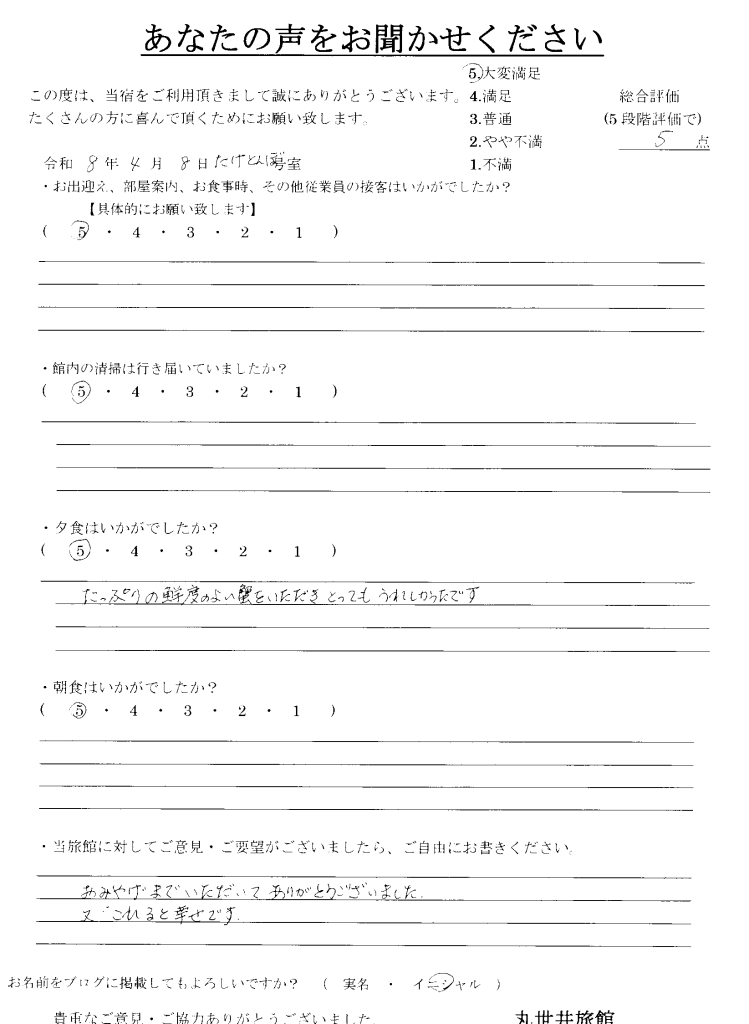 あなたの声をお聞かせください
この度は、当宿をご利用頂きまして誠にありがとうございます。
たくさんの方に喜んで頂くためにお願い致します。
5.大変満足
4.満足
3.普通
2.やや不満
1.不満
総合評価
(5段階評価で)
5 点
令和 8 年 4 月 8 日 たけとんぼ号室
・お出迎え、部屋案内、お食事時、その他従業員の接客はいかがでしたか？
【具体的にお願い致します】
( 5 ・ 4 ・ 3 ・ 2 ・ 1 )
・館内の清掃は行き届いていましたか？
( 5 ・ 4 ・ 3 ・ 2 ・ 1 )
・夕食はいかがでしたか？
( 5 ・ 4 ・ 3 ・ 2 ・ 1 )
たっぷりの鮮度のよい蟹をいただきとってもうれしかったです
・朝食はいかがでしたか？
( 5 ・ 4 ・ 3 ・ 2 ・ 1 )
・当旅館に対してご意見・ご要望がございましたら、ご自由にお書きください。
おみやげまでいただいてありがとうございました.
又、これると幸せです.
お名前をブログに掲載してもよろしいですか？ ( 実名 ・ イニシャル )
貴重なご意見・ご協力ありがとうございました。
丸世井旅館